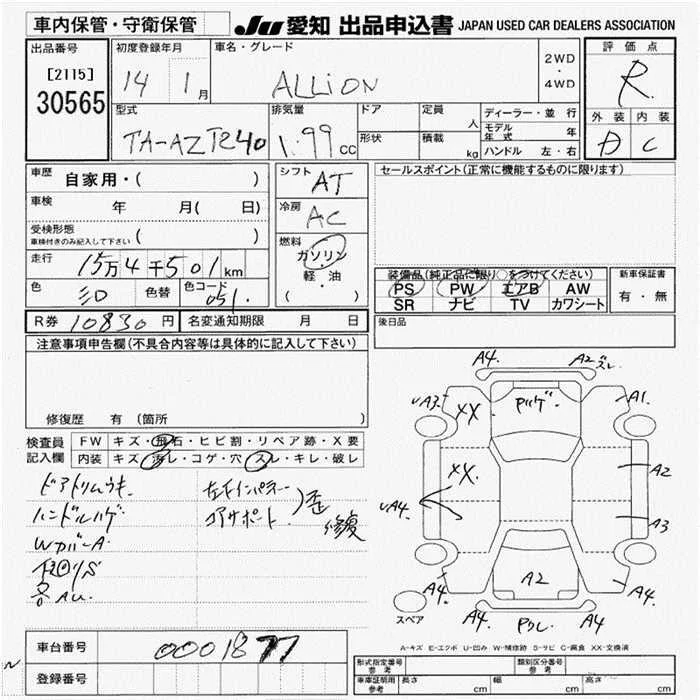 車内保管・守衛保管
JU 愛知 出品申込書 JAPAN USED CAR DEALERS ASSOCIATION
出品番号
[2115]
30565
初度登録年月
14 1月
車名・グレード
ALLiON
2WD
・
4WD
評価点
R
外装 内装
D C
型式
TA-AZT240
排気量
1.99cc
ドア
形状
定員
人
積載
kg
ディーラー・並行
モデル年式 年
ハンドル 左・右
車歴 自家用・( )
車検 年 月( 日)
受検形態
車検付きのみ記入して下さい ( )
走行 15万4千501km
色 シロ 色替 色コード 051
シフト AT
冷房 AC
燃料
ガソリン
・
軽・油
( )
セールスポイント(正常に機能するものに限ります)
装備品(純正品に限り○をつけてください)
PS PW エアB AW
SR ナビ TV カワシート
新車保証書
有・無
R券 10830円 名変通知期限 月 日
後日品
注意事項申告欄(不具合内容等は具体的に記入して下さい)
修復歴 有(箇所 )
検査員
記入欄
FW キズ・飛石・ヒビ割・リペア跡・X要
内装 キズ・汚レ・コゲ・穴・スレ・キレ・破レ
ドアトリムウキ
ハンドルハゲ
WカバーA
各AU
左インパネ
コアサポート
歪
修復
A4 A2スレ
UA3 XX Pハゲ A1
XX A2
UA4 A3
A4 A2 A4
A4 A4
スペア
A-キズ E-エクボ U-凹み W-補修跡 S-サビ C-腐食 XX-交換済
車台番号 0001877
登録番号
型式指定番号
参考
類別区分番号
参考
車庫証明用
参考
長さ cm 幅 cm 高さ cm